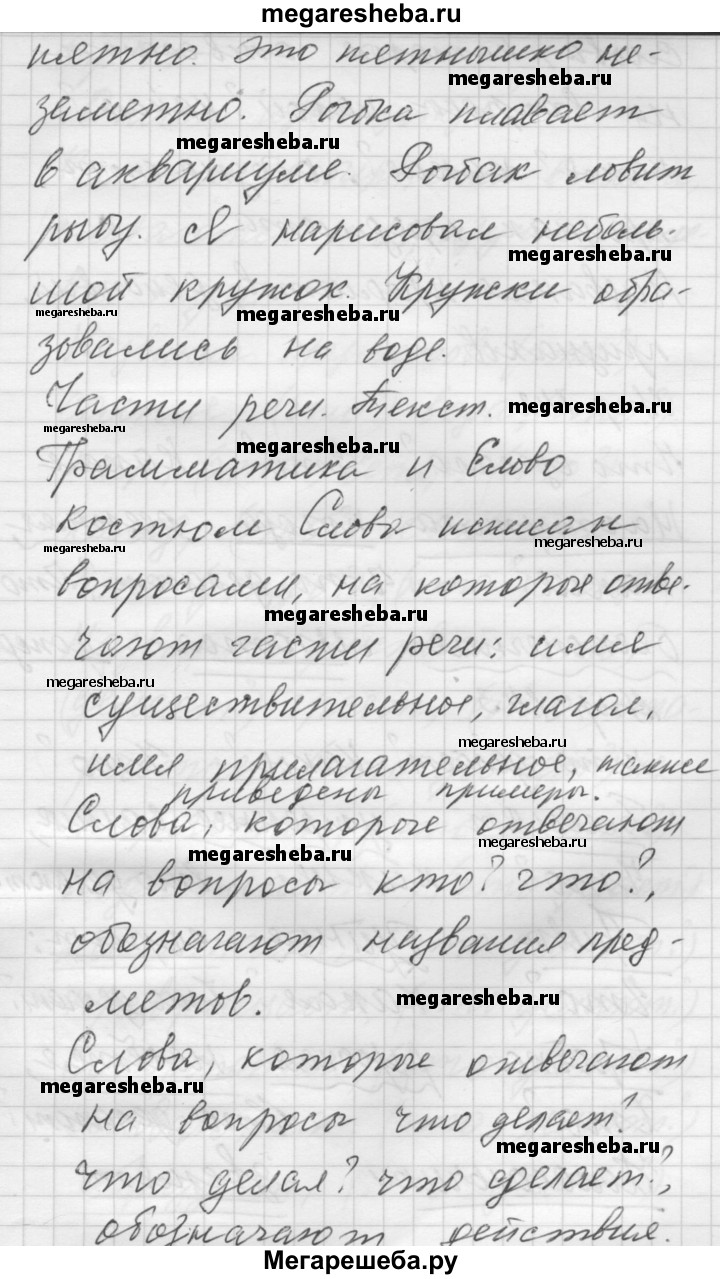 megaresheba.ru
пятно. Это пятнышко не-
megaresheba.ru
заметно. Рыбка плавает
megaresheba.ru
в аквариуме. Рыбак ловит
рыбу. Я нарисовал неболь-
megaresheba.ru
шой кружок. Кружки обра-
megaresheba.ru megaresheba.ru
зовались на воде.
Части речи. Текст.
megaresheba.ru
megaresheba.ru
megaresheba.ru
Грамматика и Слово
костюм Слова исписан
megaresheba.ru
megaresheba.ru
вопросами, на которые отве-
megaresheba.ru
чают части речи: имя
megaresheba.ru
существительное, глагол,
megaresheba.ru
имя прилагательное, также
приведены примеры.
Слова, которые отвечают
megaresheba.ru
megaresheba.ru
на вопросы кто? что?,
обозначают названия пред-
метов.
megaresheba.ru
Слова, которые отвечают
megaresheba.ru
на вопросы что делает?
megaresheba.ru
что делал? что сделает?,
обозначают действия.
Мегарешеба.ру